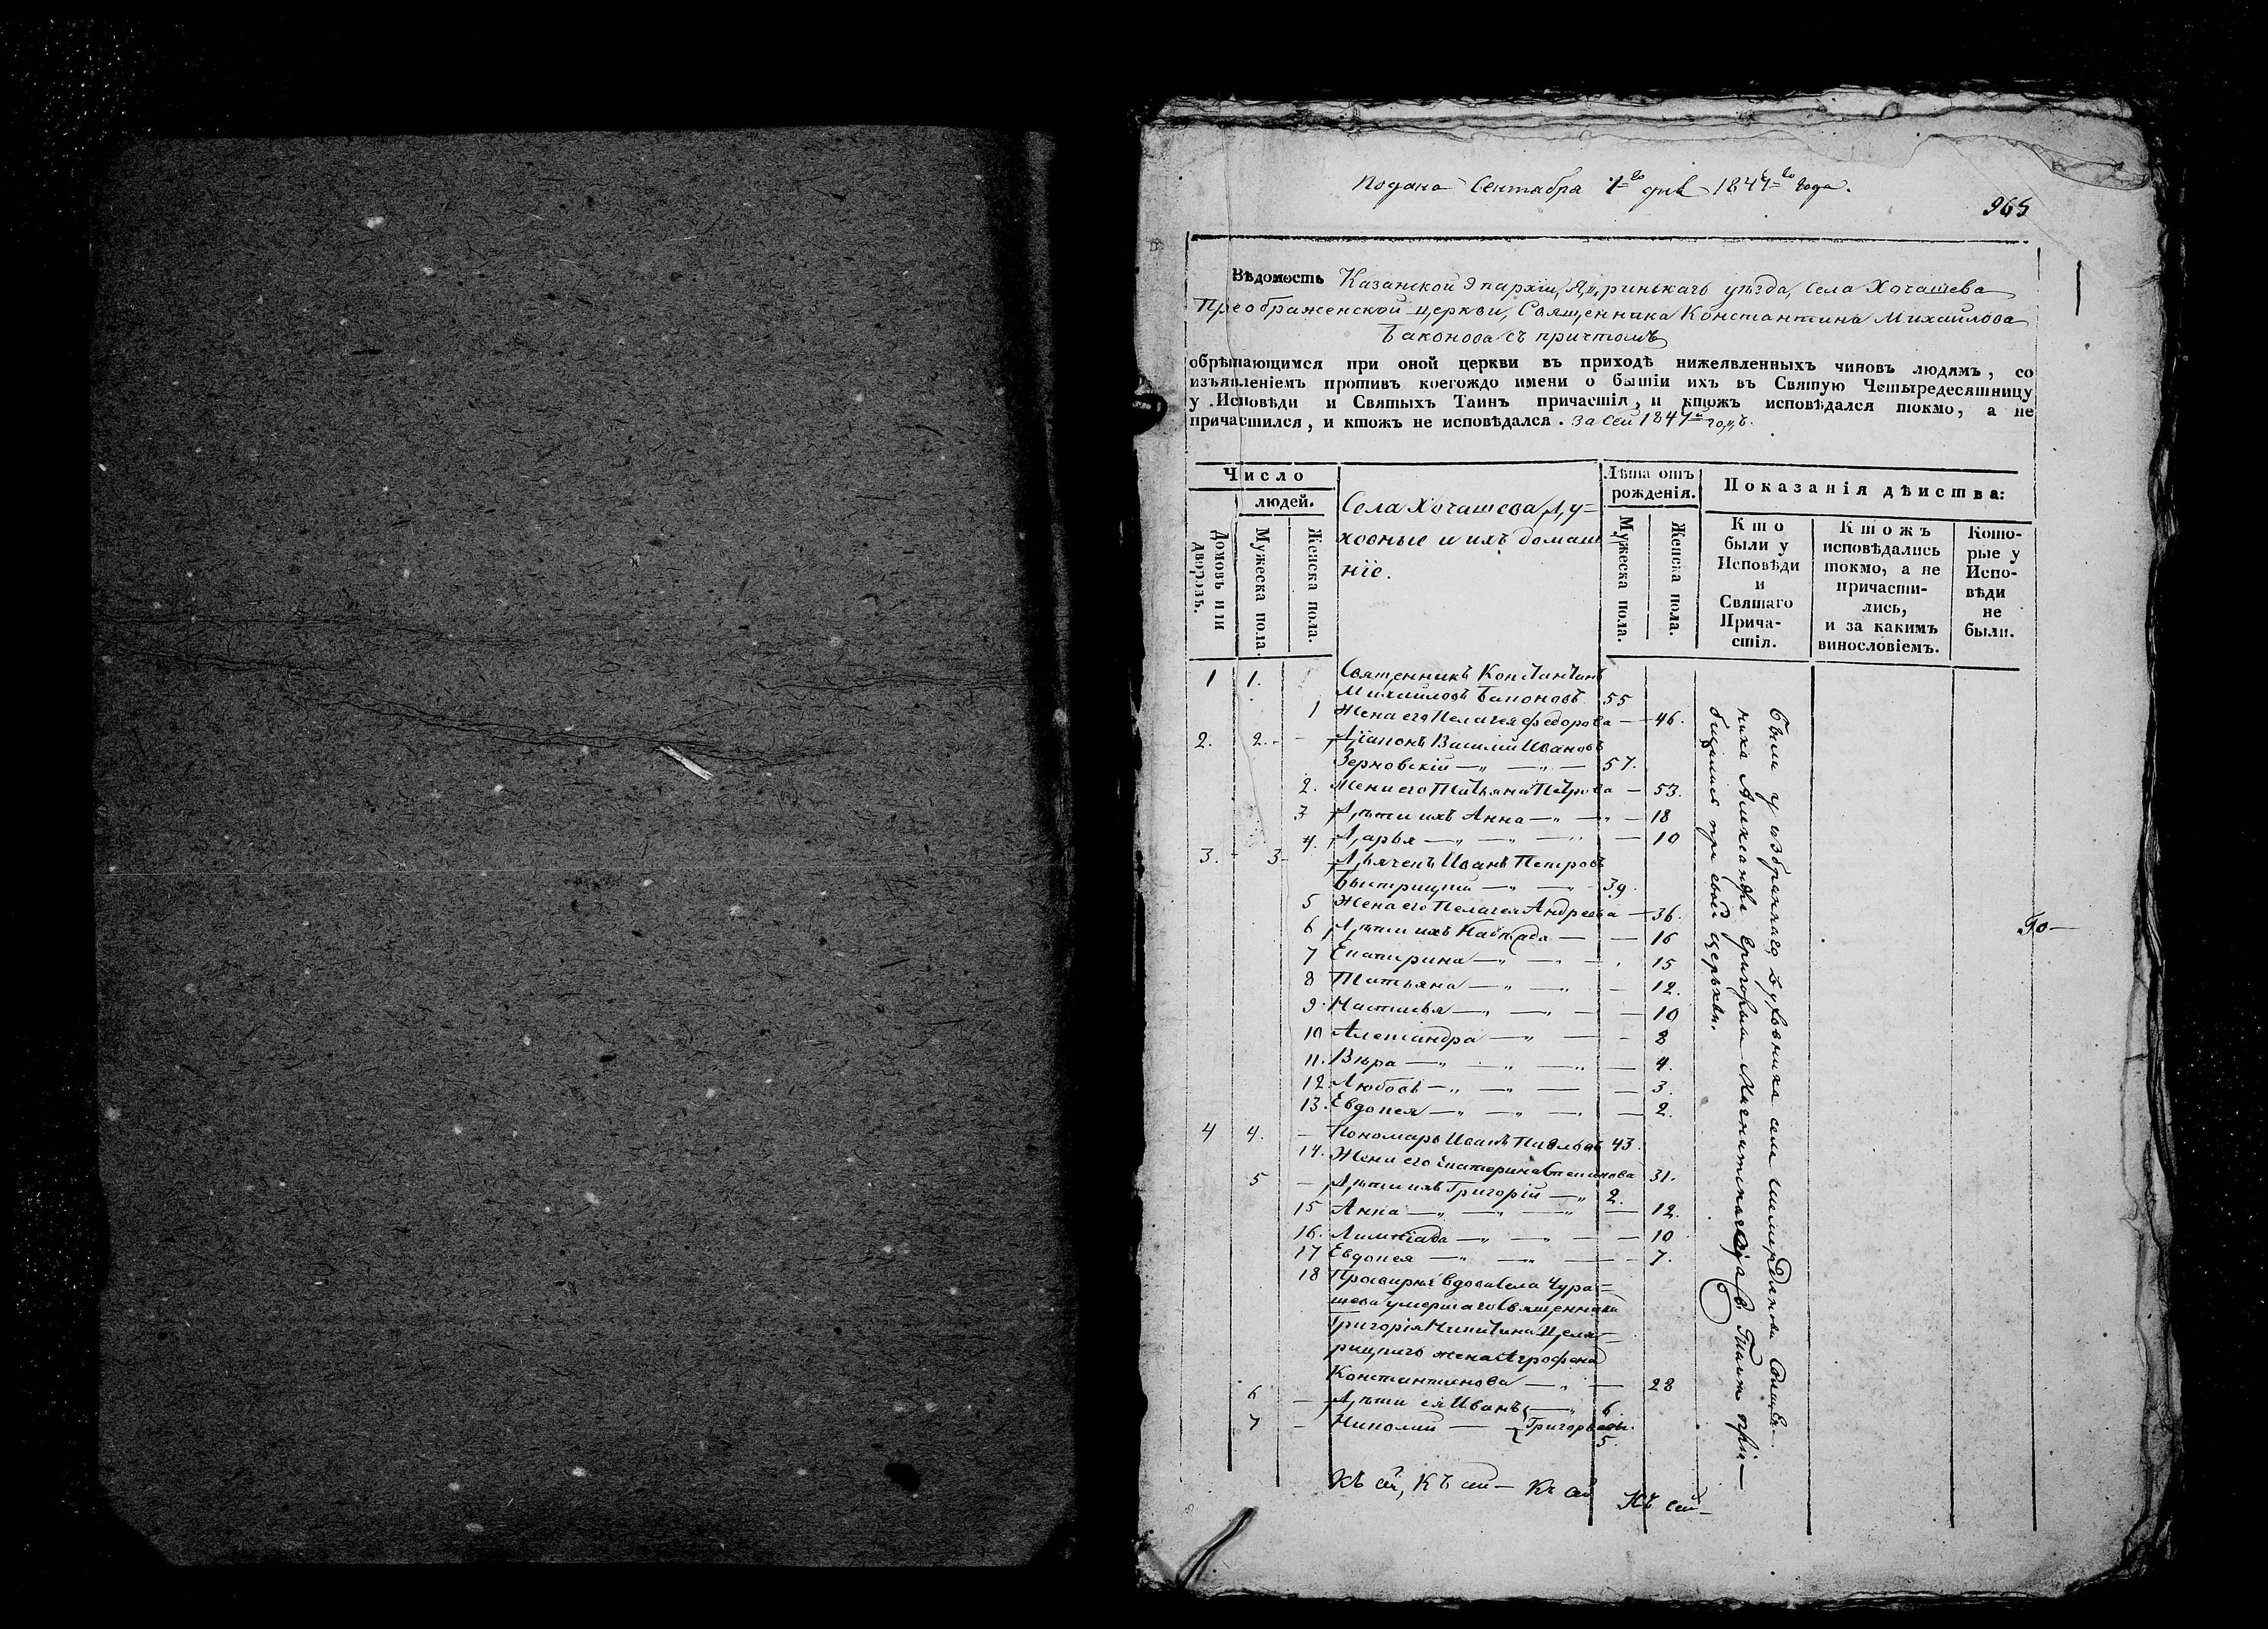 Подана Сентабра 1го дня 1844го года.
965
Вѣдомость Казанской Эпархіи, Ядринскаго уѣзда, Села Хочашева
Преображенской церкви, Священника Константина Михайлова
съ причтомъ
обрѣтающимся при оной церкви въ приходѣ нижеявленныхъ чиновъ людямъ, со
изъявленіемъ противъ коегождо имени о бытіи ихъ въ Святую Четыредесятницу
у Исповѣди и Святыхъ Таинъ причастія, и ктожъ исповѣдался токмо, а не
причастился, и ктожъ не исповѣдался. За сей 1844й годъ.
Число
людей.
Домовъ или дворовъ.
Мужеска пола.
Женска пола.
Села Хочашева Ду-
ховные и ихъ домаш
ніе.
Лѣта отъ рожденія.
Мужеска пола.
Женска пола.
Показанія дѣйства:
Кто были у Исповѣди и Святаго Причастія.
Ктожъ исповѣдались токмо, а не причастились, и за какимъ винословіемъ.
Которые у Исповѣди не были.
1 1. Священникъ Константинъ
Михайловъ 55
1 Жена его Пелагея Федорова — 46.
2. 2. - Діаконъ Василій Ивановъ
Зерновскій — „ — „ — 57.
2. Жена его Татьяна Петрова — 53.
3 Дѣти ихъ Анна — „ — „ — 18
4. Дарья — „ — „ — 10
3. 3 - Дьячекъ Иванъ Петровъ
Быстрицкій — „ — „ 39.
5 Жена его Пелагея Андреева — 36.
6 Дѣти ихъ — — 16
7 Екатерина — „ — „ — 15
8 Татьяна — „ — „ — 12.
9. Настасья — „ — „ — 10
10 Александра — „ — - 8
11. Вѣра — „ — „ — 4.
12. Любовь — „ — „ — 3.
13. Евдокея — „ — „ — 2.
4 4. - Пономарь Иванъ Павловъ 43.
14. Жена его Екатерина Степанова 31.
5 - Дѣти ихъ Григорій — „ 2.
15 Анна — „ — „ — 12.
16. Лимпіада — „ — „ — 10
17 Евдокея — „ — „ — 7.
18 Просвирня вдова Села Чура-
шева умершаго Священника
Григорія Никитина
жена Агрофена
Константинова — „ — 28
6 - Дѣти ея Иванъ — „ 6
7 - Николай — Григорьевы. 5.
Были у избраннаго духовника села Священ-
ника Александра Григорьева Св. Таинъ прі-
при своей церькви.